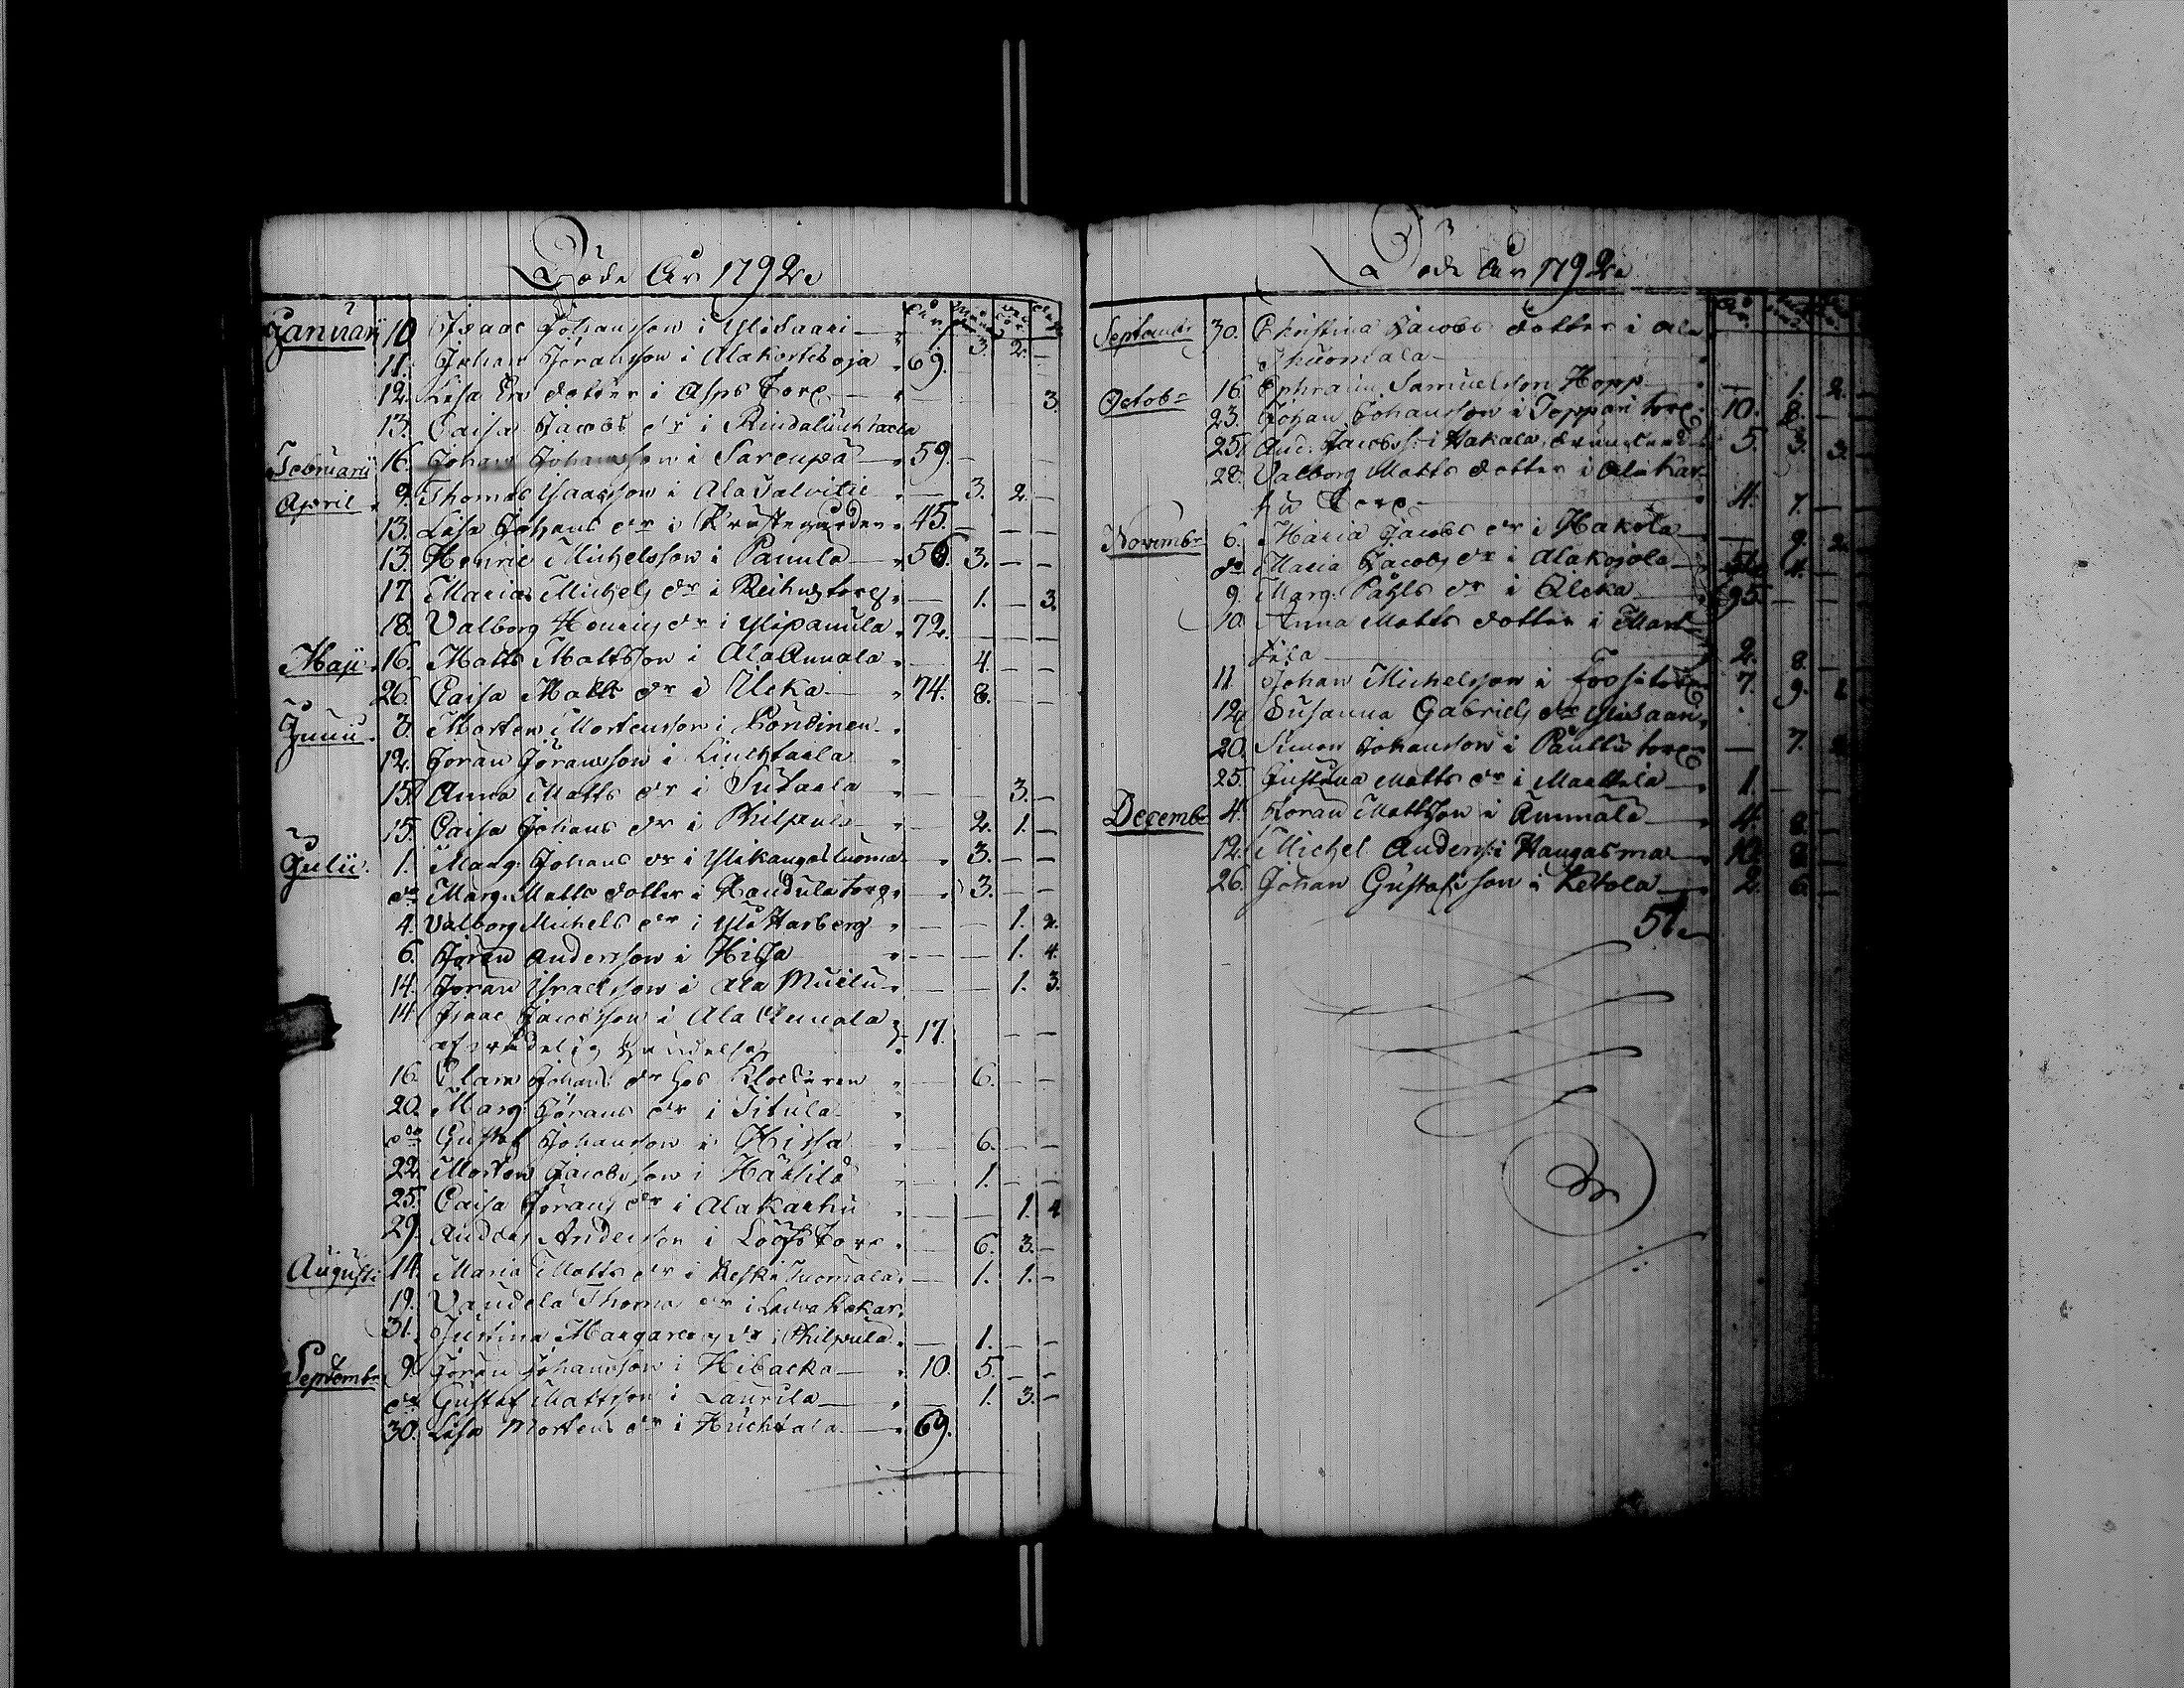 Döde År 1792
År Mån Vec kor dag
Januarii 10. Isaac Johansson i Ylisaari — 3. 2. —
11. Johan Jöransson i Alakortesoja 69.
12. Lisa Er. dotter i Asps Torp — 3.
13. Caisa Jacobs dr i
Februarii 16. Johan Johansson i Sarenpä — 59. —
April 9. Thomas Isaacsson i Ala Salvitie — 3. 2. —
13. Lisa Johans dr i Prustegården 45. — — —
13. Henric Michelsson i Panula — 56. 3. — —
17. Maria Michels dr i torp — 1. — 3.
18. Valborg Henrics dr i Ylipanula 72. — — —
Maji 16. Matts Mattsson i Ala Annala — 4. — —
26. Caisa Matts dr i Ueka — 74. 8. — —
Junii 3. Morten Mortensson i Pontinen
12. Jöran Jöransson i Luchtaala
15. Anna Matts dr i — — 3. —
15. Caisa Johans dr i Philpula — 2. 1. —
Julii 1. Marg. Johans dr i Ylikangasluoma — 3. — —
do Marg. Matts dotter i Randula torp — 3. — —
4. Valborg Michels dr i Yli Harberg — — 1. 2.
6. Jöran Andersson i Hissa — — 1. 4.
14. Jöran Israelsson i Ala Muilu — — 1. 3.
14. Isaac Jacobsson i Ala Annala
af vådelig händelse 17. — —
16. Clara Johans dr hos Klockaren — 6. — —
20. Marg. Jörans dr i Titula
do Gustaf Johansson i Hissa 6. — —
22. Morten Jacobsson i Hautila 1. — —
25. Caisa Jörans dr i Alakarhu — — 1. 4
29. Anders Andersson i Löfs Torp — 6. 3. —
Augusti 14. Maria Matts dr i Keski Tuomala — 1. 1. —
19. Vendela Thomas dr i
31. Justina Margareta dr i Philpula — 1. — —
Septembr 9. Jöran Johansson i Hibacka — 10. 5. — —
do Gustaf Mattsson i Laurila — 1. 3. —
30. Lisa Mortens dr i Huchtala — 69.
Döde År 1792
Septembr 30. Christina Jacobs dotter i Ala
Thuomala
Octobr 16. Ephraim Samuelsson Hopp — 1. 2. —
23. Johan Johansson i Toppari torp 10. 8. — —
25. And. Jacobss. i Hakala, drunknad 5. 3. 3. —
28. Valborg Matts dotter i Ala Kar
hu Torp — 4. 7. — —
Novembr 6. Maria Jacobs dr i Hakola — 9. 2.
do Maria Jacobs dr i Alakojola 4. —
9. Marg. Påhls dr i Uleka — 95. — —
10. Anna Matts dotter i Mart
tila — 2. 8. —
11. Johan Michelsson i 7. 9.
12. Susanna Gabriels dr Ylisaari
20. Simon Johansson i Panttu torp — 7.
25. Justina Matts dr i Marttila — 1. —
Decembr 4. Jöran Mattsson i Ammala — 4. 8. —
12. Michel Anderss. i Kangasma — 8. —
26. Johan Gustafsson i Ketola — 2. 6. —
51.